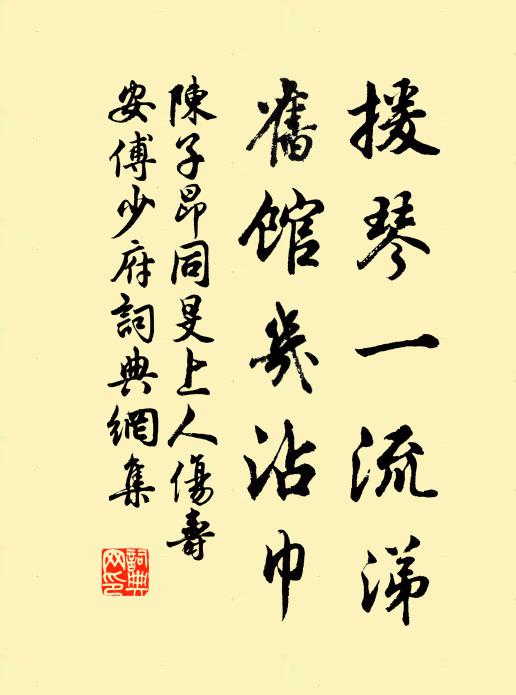 援琴一流涕
舊館幾沾巾
陳子昂同旻上人傷壽
安傅少府詞典網集
詞典網印